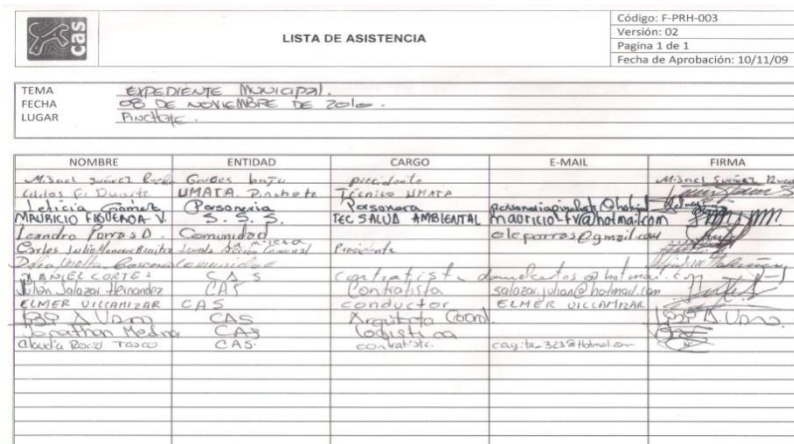 cas
LISTA DE ASISTENCIA
Código: F-PRH-003
Versión: 02
Pagina 1 de 1
Fecha de Aprobación: 10/11/09
TEMA EXPEDIENTE MUNICIPAL.
FECHA 08 DE NOVIEMBRE DE 2010.
LUGAR PINCHOTE.
NOMBRE ENTIDAD CARGO E-MAIL FIRMA
Misael Suárez bajo presidente Misael Suárez
Duarte UMATA. Pinchote Técnico UMATA
Leticia Gámez Personería Personera
MAURICIO FIGUEROA V. S.S.S. TEC SALUD AMBIENTAL mauricio_fv@hotmail.com
Leandro Porras D. Comunidad oleporras@gmail.com
Carlos Julio Benitez Junta Acción Comunal Presidente
Comunidad
DANIEL CORTES CAS Contratista @hotmail.com
Julián Salazar Hernandez CAS Contratista salazar.julian@hotmail.com
ELMER VILLAMIZAR CAS conductor ELMER VILLAMIZAR
CAS Arquitecto Coord.
Jonathan Medina CAS Logística
Claudia Rocio Tasco CAS. contratista.